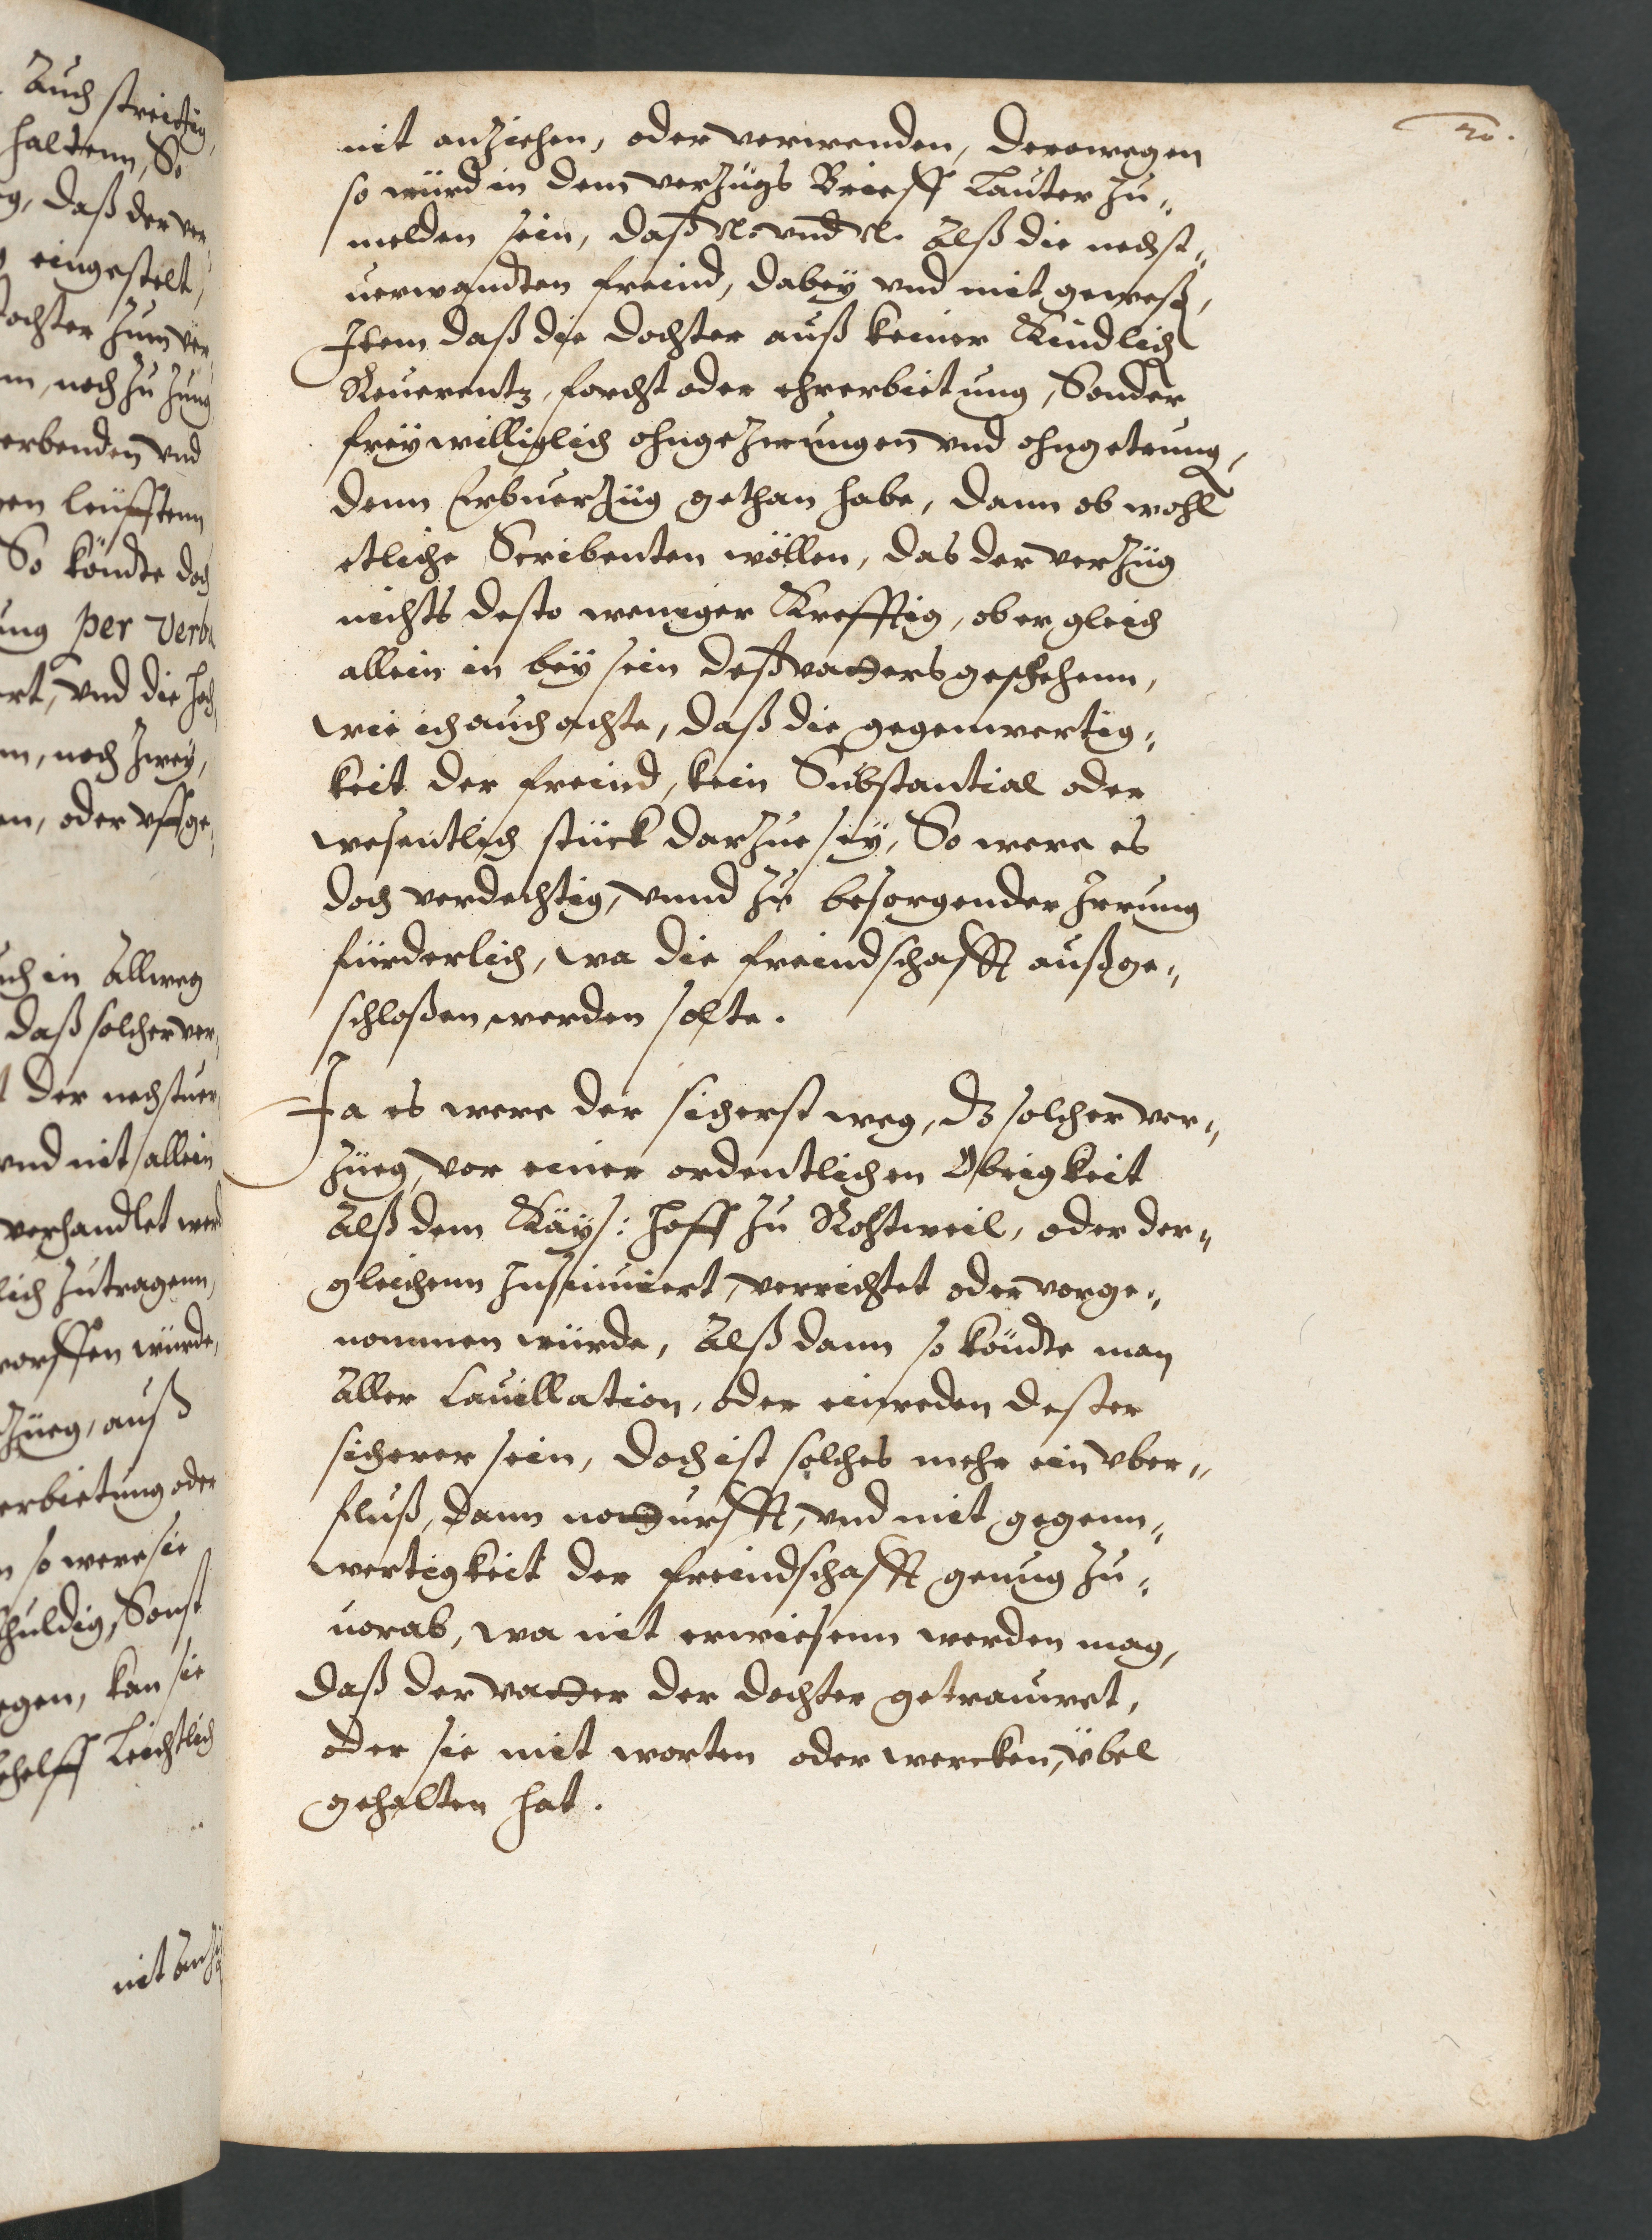 Auch streittig,
haltenn, So
g, daß der ver,
eingestelt,
tochter zum ver,
m, noch zu Jung
erbenden vnd
en leüfftenn
So köndte doch
ung per Verba
ert, vnd die hoch,
m, noch zwey,
en, oder vffge,
uch in Allweg
daß solcher ver,
t der nechstuer,
vnd nit allein
verhandlet werd
lich zutragenn,
worffen würde,
Züeg, auß
erbietung oder
n so were sie
schuldig, Sonst
egen, kan sie
behelff Leichtlich
nit Anzi
20.
nit anziehen, oder verwenden, derowegen
so würd in dem verzügs Brieff Lauter zu„
melden sein, daß N. vnd N. Alß die nechst„
uerwandten freind, dabey vnd mit geweßen,
Item daß die dochter auß keiner Kindlich
Reuerentz, forcht oder ehrerbietung, Sonder
freÿwilliglich ohngezwungen vnd ohngetrung,
denn Erbuerzüg gethan habe, dann ob wohl
etliche Scribenten wöllen, das der verzüg
nichts desto weniger Krefftig, ob er gleich
allein in beÿsein deß vatters geschehenn,
wie ich auch achte, daß die gegenwertig„
keit der freind, kein Substantial oder
wesentlich stück darzue seÿ, So were es
doch verdechtig, vnnd zu besorgender Irrung
fürderlich, wa die freindschafft außge„
schloßen werden solte.
Ja es were der sicherst weg, dz solcher ver„
züeg, vor einer ordentlichen Obrigkeit
Alß dem Käys: Hoff zu Rohtweil, oder der„
gleichenn Insinuiert, verrichtet oder vorge„
nommen würde, Alß dann so köndte man
Aller Cauillation, oder einreden dester
sicherer sein, doch ist solches mehr ein vber„
fluß, dann notturfft, vnd mit gegenn„
wertigkeit der freindschafft genug zu„
uorab, wa nit erwiesenn werden mag,
daß der vatter der dochter getrauwet,
oder sie mit worten oder wercken, übel
gehalten hat.